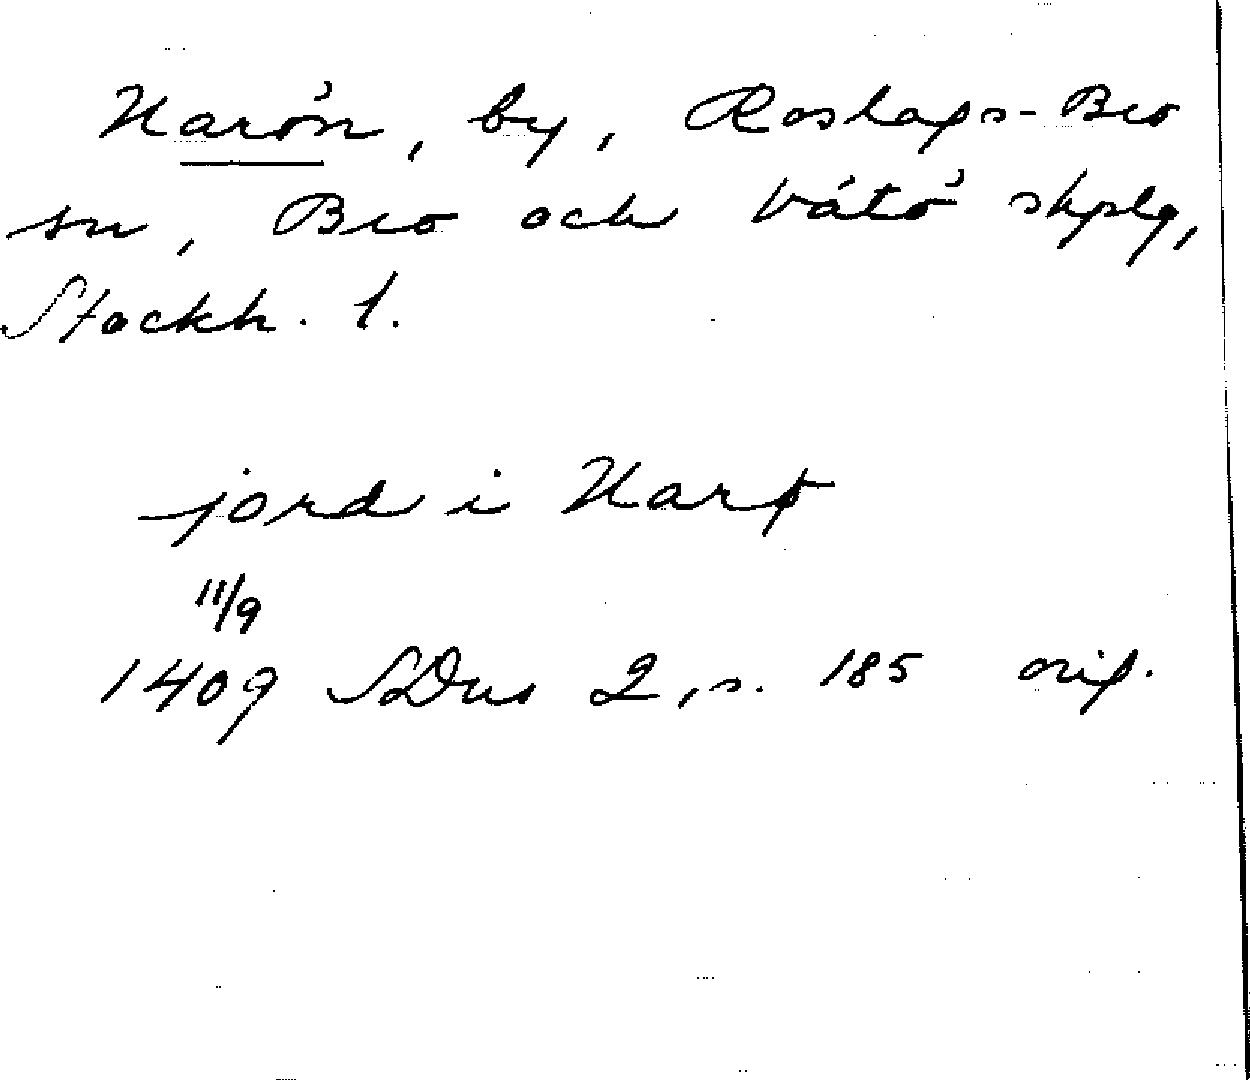 Harön, by, Roslags-Bro
sn, Bro och Vätö skplg,
Stockh. l.
jord i Harø
11/9
1409 SDns 2, s. 185 orig.